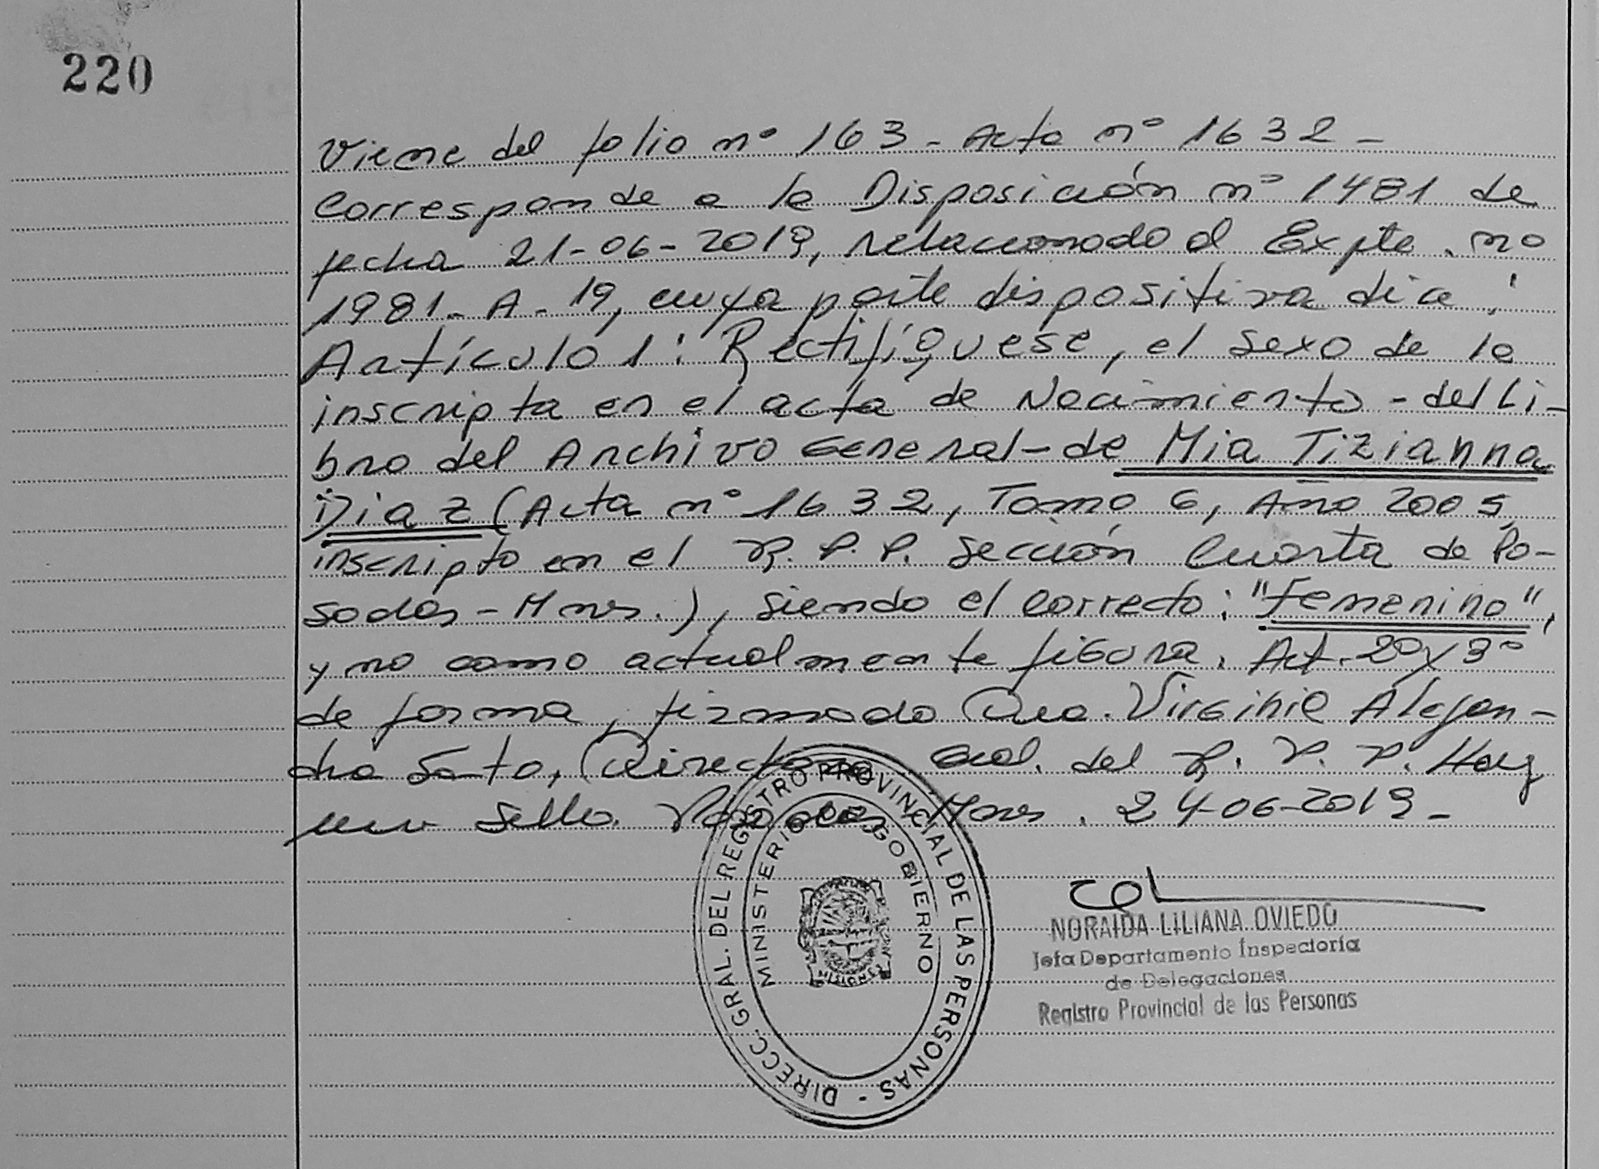 220
Viene del folio nº 163 - Acta nº 1632 -
Corresponde a la Disposición nº 1481 de
fecha 21-06-2019, relacionado al Expte. nº
1981- A - 19, cuya parte dispositiva dice:
Artículo 1: Rectifíquese, el sexo de la
inscripta en el acta de Nacimiento - del Li-
bro del Archivo General - de Mia Tizianna
Diaz (Acta nº 1632, Tomo 6, Año 2005,
inscripto en el R. P. P. Sección Cuarta de Po-
sadas - Mnes.), siendo el correcto: "Femenino",
y no como actualmente figura. Art. 2º y 3º
de forma, firmado Dra. Virginia Alejan-
dra Soto, Directora Gral. del R. P. P. Hay
un sello. Posadas, Mnes. 24-06-2019 -
DIRECC. GRAL. DEL REGISTRO PROVINCIAL DE LAS PERSONAS -
MINISTERIO DE GOBIERNO
MISIONES
NORAIDA LILIANA OVIEDO
Jefa Departamento Inspectoría
de Delegaciones
Registro Provincial de las Personas